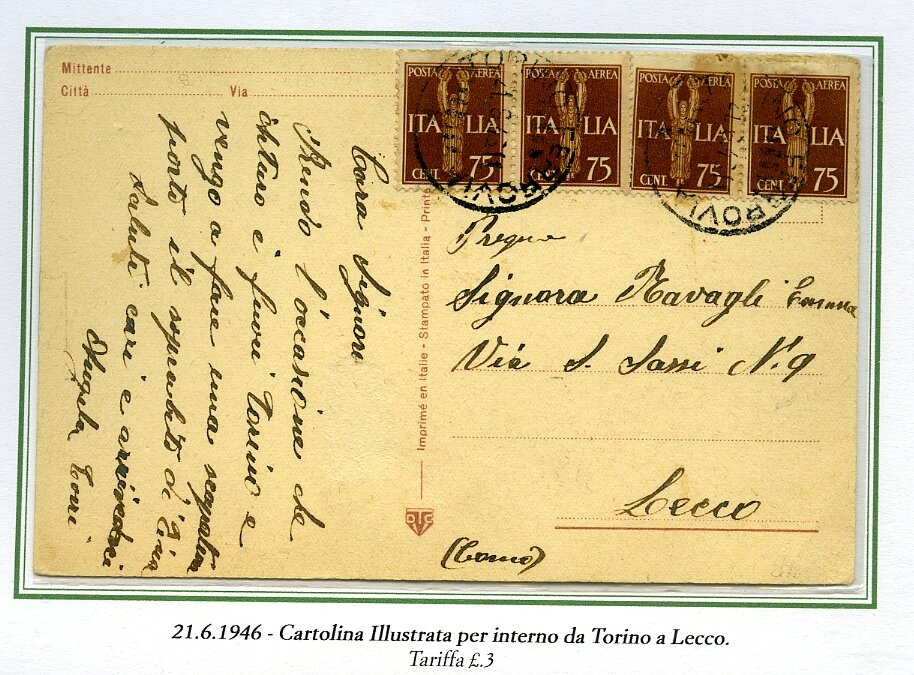 Mittente
Città Via
POSTA AEREA
ITALIA
CENT. 75
POSTA AEREA
ITALIA
CENT. 75
POSTA AEREA
ITALIA
CENT. 75
POSTA AEREA
ITALIA
CENT. 75
Cara Signora
Rendo l'occasione che
Arturo è fuori Torino e
vengo a fare una scappatina
porto il soprabito di Zina
Saluti cari e arrivederci
Angela Torri
Imprimé en Italie - Stampato in Italia - Print
Pregma
Signora Ravagli
Via S. Sassi N. 9
Lecco
(Como)
21.6.1946 - Cartolina Illustrata per interno da Torino a Lecco.
Tariffa £.3